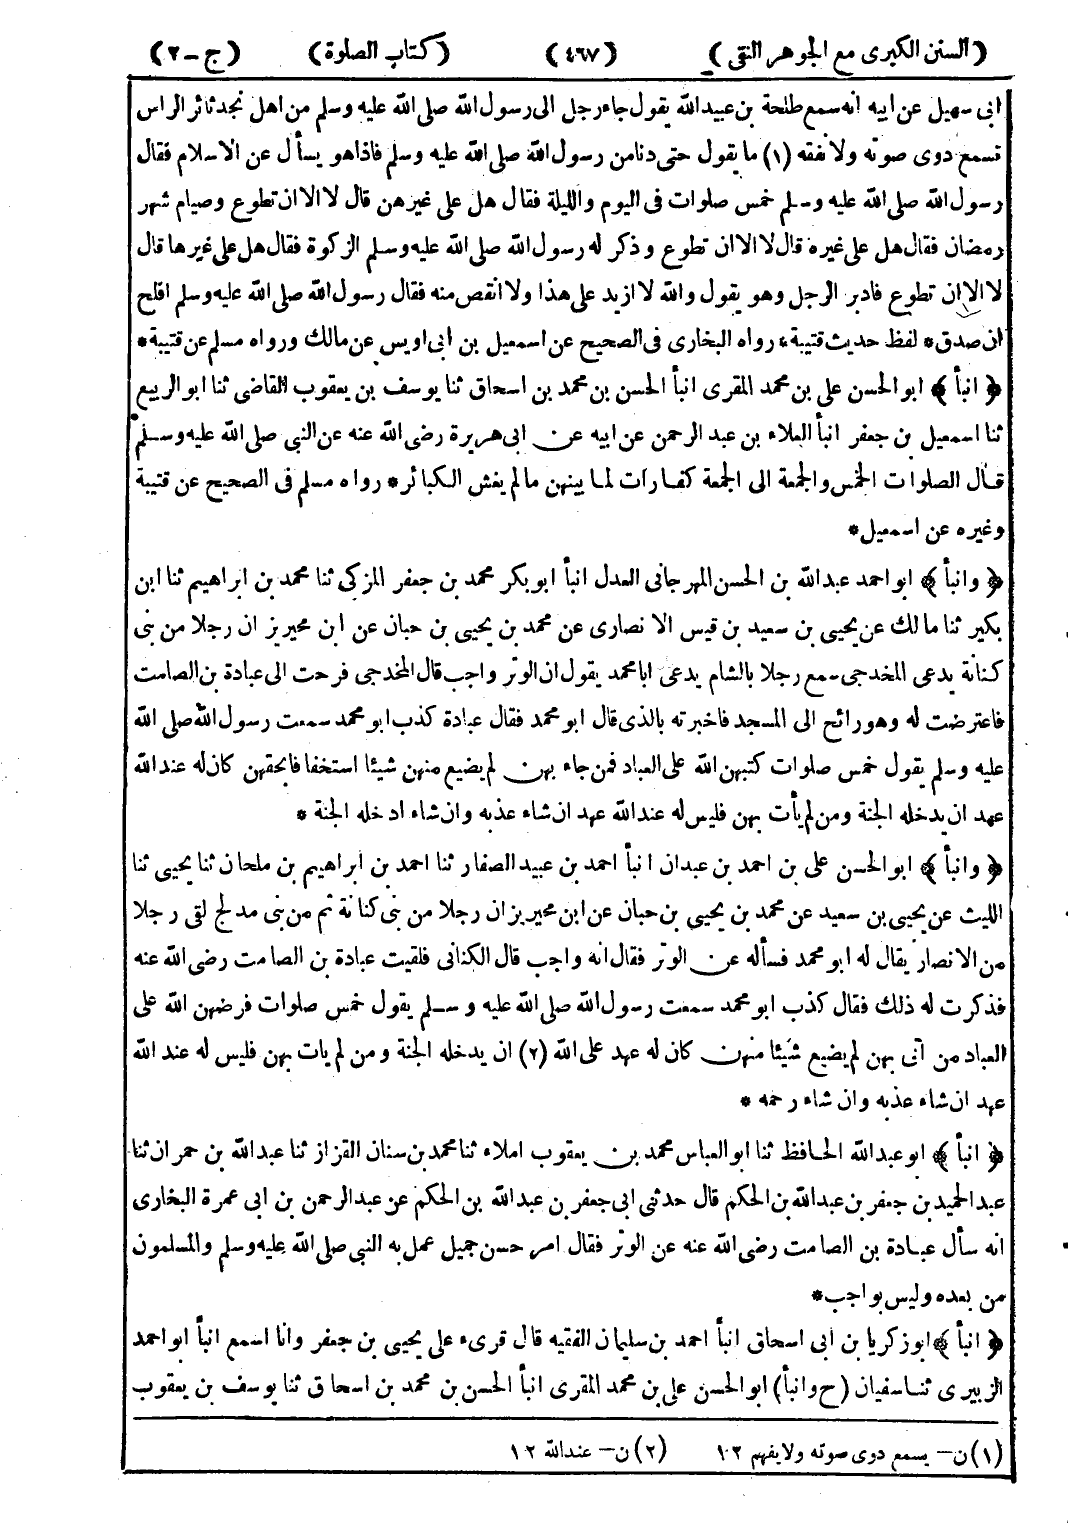 (السنن الكبرى مع الجوهر النقى) (٤٦٧) (كتاب الصلوة) (ج-٢)
ابى سهيل عن ابيه انه سمع طلحة بن عبيدالله يقول جاء رجل الى رسول الله صلى الله عليه وسلم من اهل نجد ثائر الراس
تسمع دوى صوته ولا نفقه (١) ما يقول حتى دنا من رسول الله صلى الله عليه وسلم فاذا هو يسأل عن الاسلام فقال
رسول الله صلى الله عليه وسلم خمس صلوات فى اليوم والليلة فقال هل على غيرهن قال لا الا ان تطوع وصيام شهر
رمضان فقال هل على غيره قال لا الا ان تطوع وذكر له رسول الله صلى الله عليه وسلم الزكوة فقال هل على غيرها قال
لا الا ان تطوع فادبر الرجل وهو يقول والله لا ازيد على هذا ولا انقص منه فقال رسول الله صلى الله عليه وسلم افلح
ان صدق* لفظ حديث قتيبة* رواه البخارى فى الصحيح عن اسمعيل بن ابى اويس عن مالك ورواه مسلم عن قتيبة*
﴿ انبأ ﴾ ابو الحسن على بن محمد المقرى انبأ الحسن بن محمد بن اسحاق ثنا يوسف بن يعقوب القاضى ثنا ابو الربيع
ثنا اسمعيل بن جعفر انبأ العلاء بن عبد الرحمن عن ابيه عن ابى هريرة رضى الله عنه عن النبى صلى الله عليه وسلم
قال الصلوات الخمس والجمعة الى الجمعة كفارات لما بينهن ما لم يغش الكبائر* رواه مسلم فى الصحيح عن قتيبة
وغيره عن اسمعيل*
﴿ وانبأ ﴾ ابو احمد عبدالله بن الحسن المهرجانى العدل انبأ ابو بكر محمد بن جعفر المزكى ثنا محمد بن ابراهيم ثنا ابن
بكير ثنا مالك عن يحيى بن سعيد بن قيس الانصارى عن محمد بن يحيى بن حبان عن ابن محيريز ان رجلا من بنى
كنانة يدعى المخدجى سمع رجلا بالشام يدعى ابا محمد يقول ان الوتر واجب قال المخدجى فرحت الى عبادة بن الصامت
فاعترضت له وهو رائح الى المسجد فاخبرته بالذى قال ابو محمد فقال عبادة كذب ابو محمد سمعت رسول الله صلى الله
عليه وسلم يقول خمس صلوات كتبهن الله على العباد فمن جاء بهن لم يضيع منهن شيئا استخفافا بحقهن كان له عند الله
عهد ان يدخله الجنة ومن لم يأت بهن فليس له عند الله عهد ان شاء عذبه وان شاء ادخله الجنة *
﴿ وانبأ ﴾ ابو الحسن على بن احمد بن عبدان انبأ احمد بن عبيد الصفار ثنا احمد بن ابراهيم بن ملحان ثنا يحيى ثنا
الليث عن يحيى بن سعيد عن محمد بن يحيى بن حبان عن ابن محيريز ان رجلا من بنى كنانة ثم من بنى مدلج لقى رجلا
من الانصار يقال له ابو محمد فسأله عن الوتر فقال انه واجب قال الكنانى فلقيت عبادة بن الصامت رضى الله عنه
فذكرت له ذلك فقال كذب ابو محمد سمعت رسول الله صلى الله عليه وسلم يقول خمس صلوات فرضهن الله على
العباد من اتى بهن لم يضيع شيئا منهن كان له عهد على الله (٢) ان يدخله الجنة ومن لم يات بهن فليس له عند الله
عهد ان شاء عذبه وان شاء رحمه *
﴿ انبأ ﴾ ابو عبدالله الحافظ ثنا ابو العباس محمد بن يعقوب املاء ثنا محمد بن سنان القزاز ثنا عبدالله بن حمران ثنا
عبد الحميد بن جعفر بن عبدالله بن الحكم قال حدثنى ابى جعفر بن عبدالله بن الحكم عن عبد الرحمن بن ابى عمرة البخارى
انه سأل عبادة بن الصامت رضى الله عنه عن الوتر فقال امر حسن جميل عمل به النبى صلى الله عليه وسلم والمسلمون
من بعده وليس بواجب*
﴿ انبأ ﴾ ابو زكريا بن ابى اسحاق انبأ احمد بن سليمان الفقيه قال قرىء على يحيى بن جعفر وانا اسمع انبأ ابو احمد
الزبيرى ثنا سفيان (ح وانبأ) ابو الحسن على بن محمد المقرى انبأ الحسن بن محمد بن اسحاق ثنا يوسف بن يعقوب
(١) ن- يسمع دوى صوته ولا يفهم ١٠٢ (٢) ن- عند الله ١٢